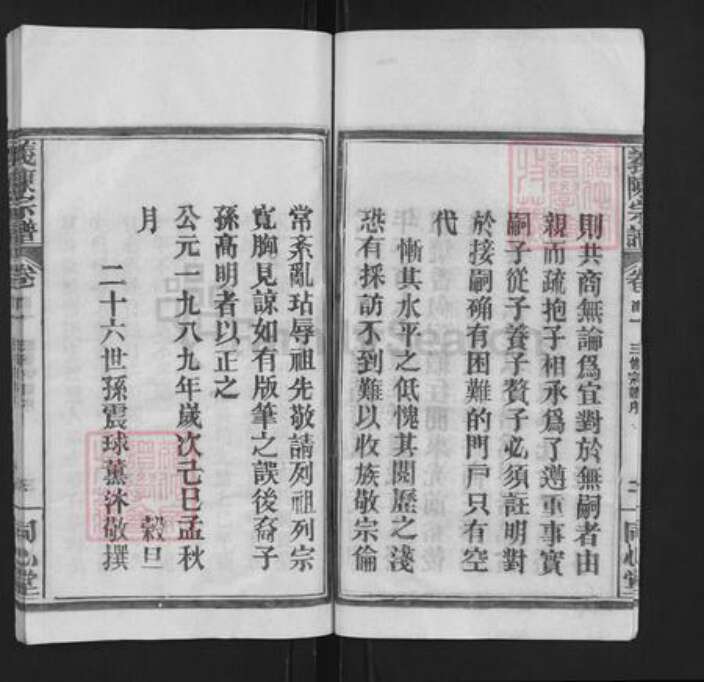 則共商無論爲宜對於無嗣者由
親而疏抱子相承爲了遵重事實
嗣子從子養子贅子必須註明對
於接嗣确有困難的門戶只有空
代
年慚其水平之低愧其閱歷之淺
恐有採訪不到難以收族敬宗倫
常紊亂玷辱祖先敬請列祖列宗
寬胸見諒如有版筆之誤後裔子
孫高明者以正之
公元一九八九年歲次己巳孟秋
月 穀旦
二十六世孫震球薰沐敬撰
義陳宗譜 卷
同心堂
義陳宗譜 卷首一 三修宗譜序
同心堂